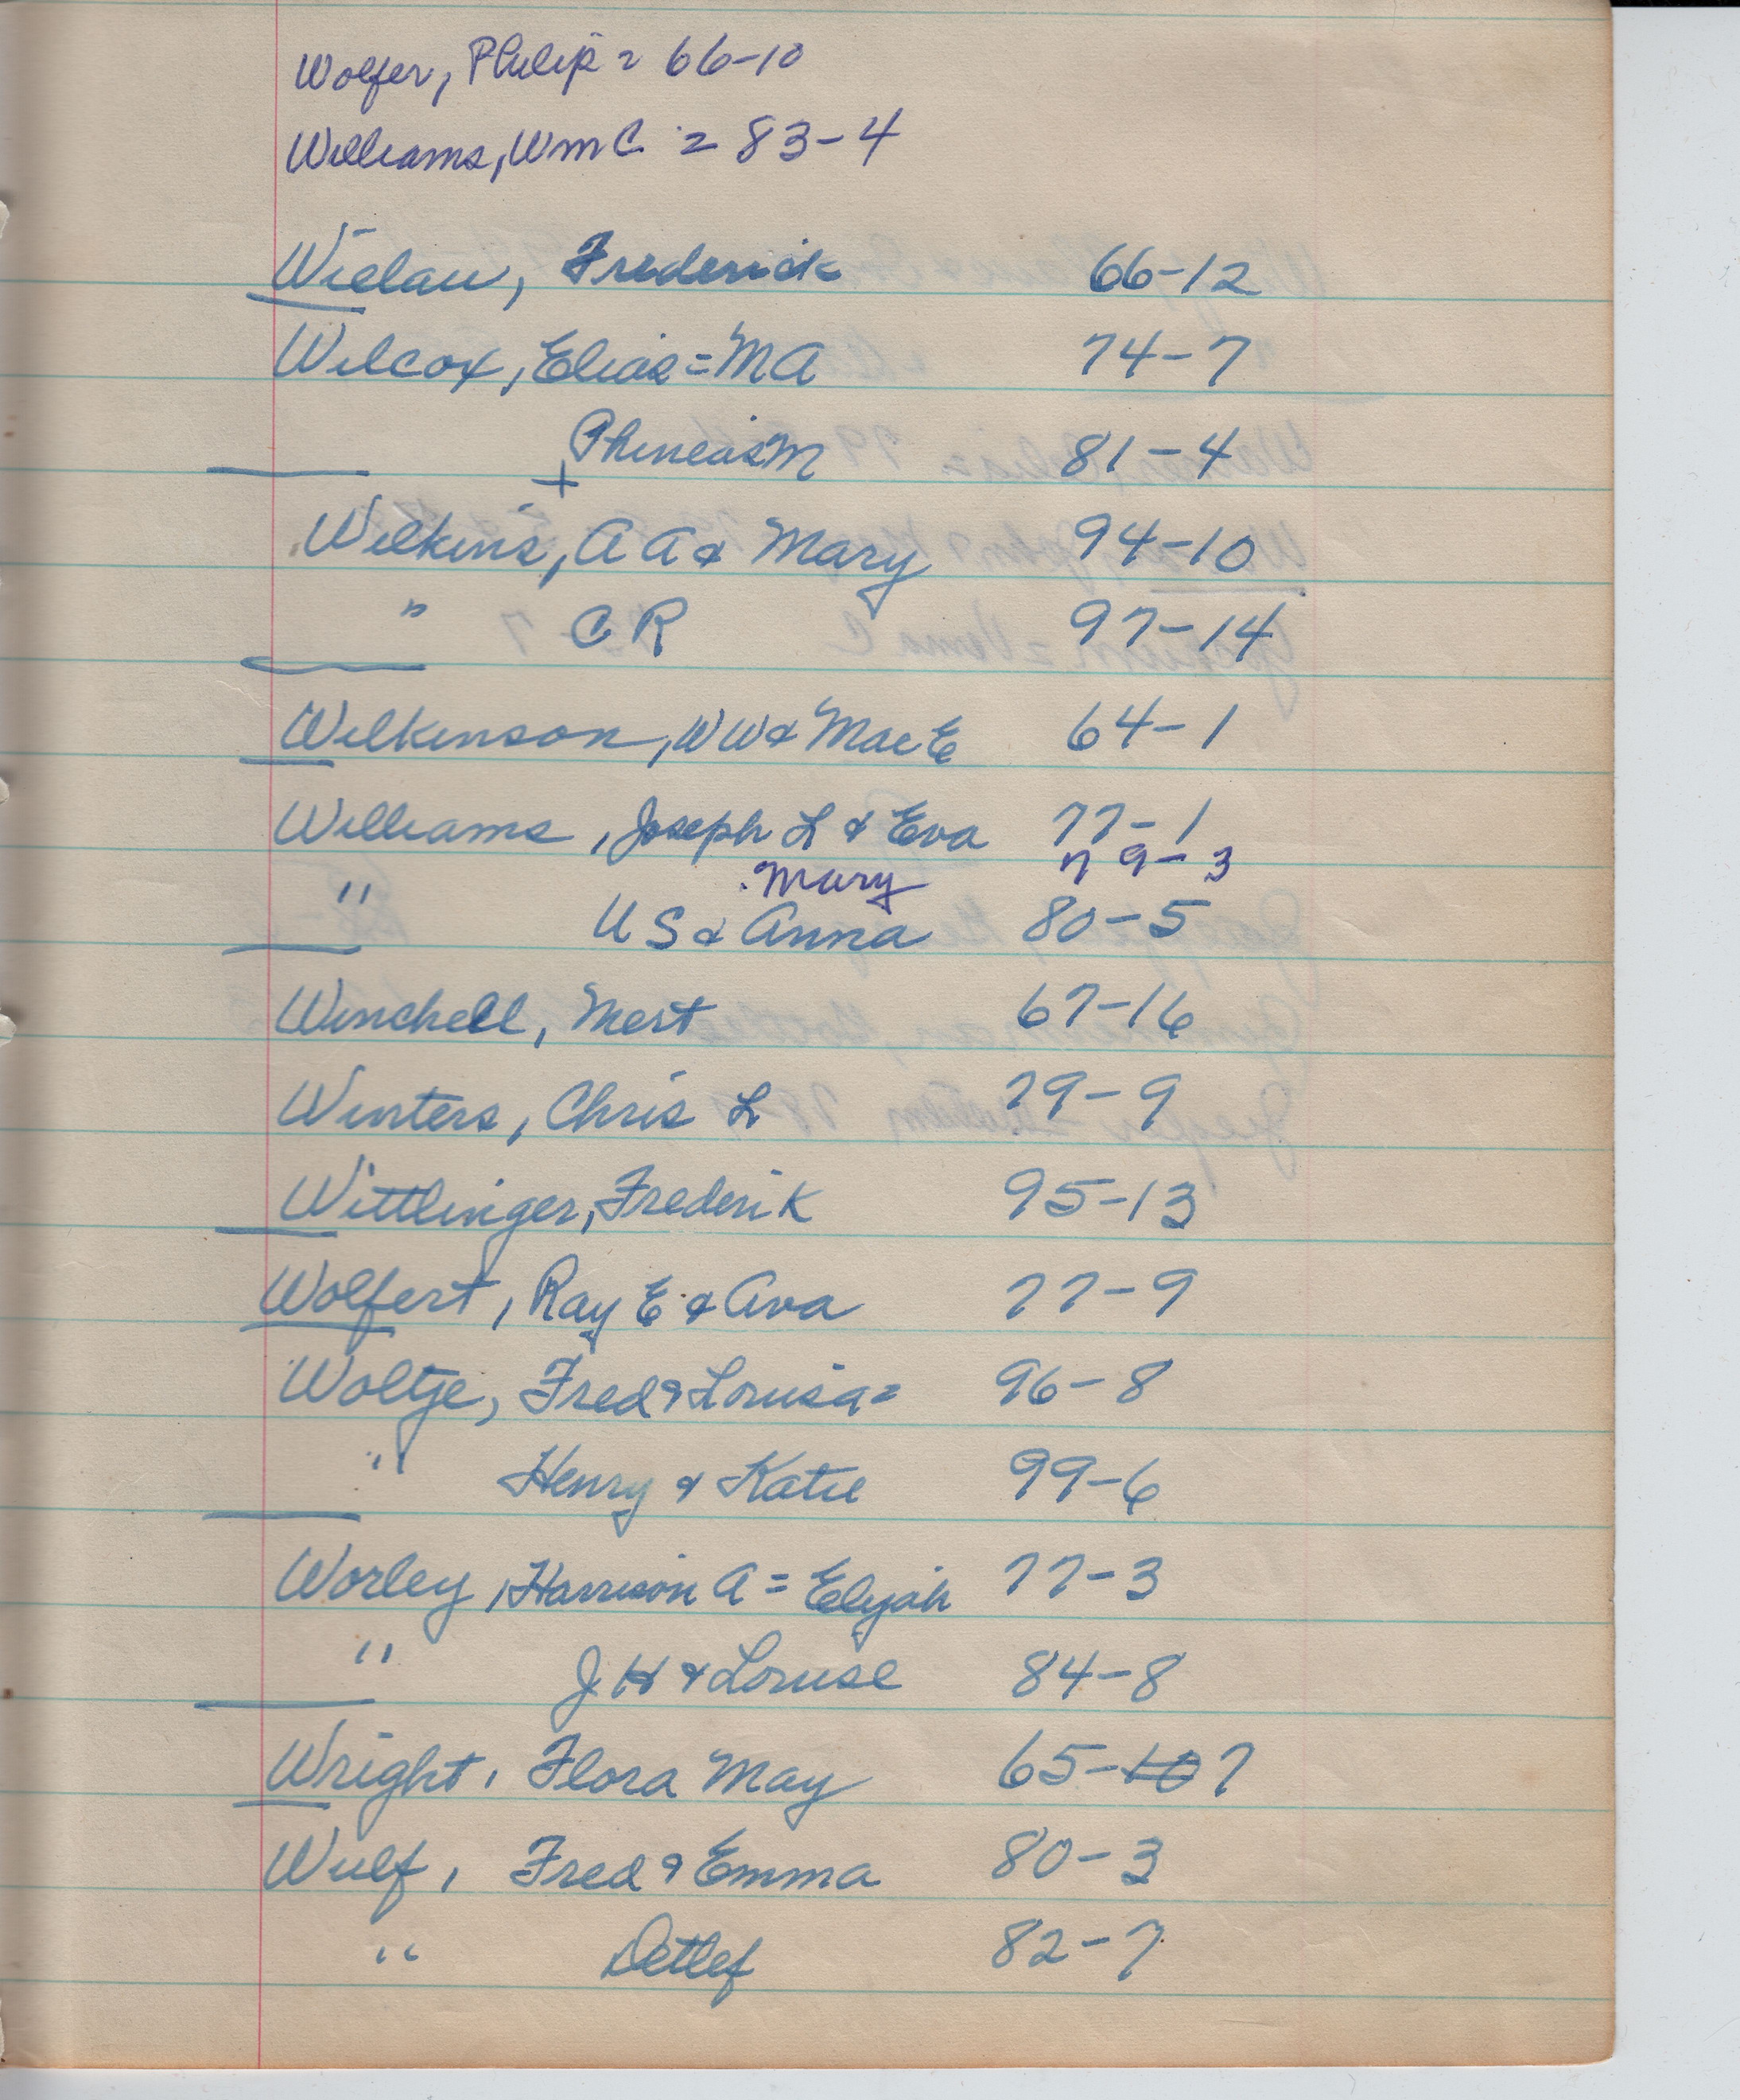 Wolfer, Philip = 66-10
Williams, Wm C = 83-4
Wielau, Frederick 66-12
Wilcox, Elias = MA 74-7
Phineas M 81-4
+
Wilkins, A A & Mary 94-10
" C R 97-14
Wilkinson, W W & Mae E 64-1
Williams, Joseph L & Eva 77-1
Mary 79-3
" U S & Anna 80-5
Winchell, Mert 67-16
Winters, Chris L 79-9
Wittlinger, Frederik 95-13
Wolfert, Ray E & Ava 77-9
Woltje, Fred & Louisa = 96-8
" Henry & Katie 99-6
Worley, Harrison A = Elijah 77-3
" J H & Louise 84-8
Wright, Flora May 65-10 7
Wulf, Fred & Emma 80-3
" Detlef 82-7